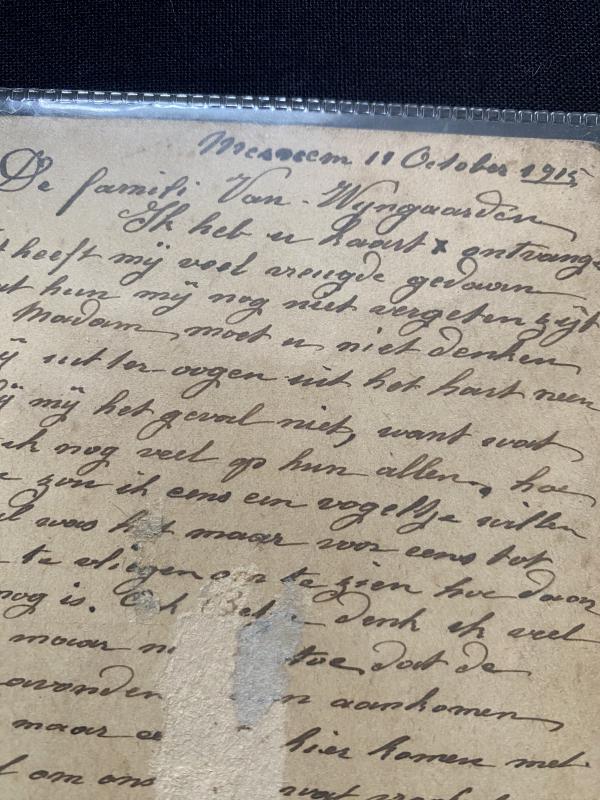 11 October 1915
De famili Van-Wijngaarden
Ik heb u kaart x ontvange
heeft mij veel vreugde gedaan
hun mij nog niet vergeten zijt
Madam, moet u niet denken
uit ter oogen uit het hart neen
mij het geval niet, want wat
ik nog veel op hun allen, hoe
zou ik eens een vogeltje willen
was het maar voor eens tot
te vliegen om te zien hoe daar
nog is. denk ik veel
maar toe, dat de
avonden aankomen
maar hier komen met
om ons wat